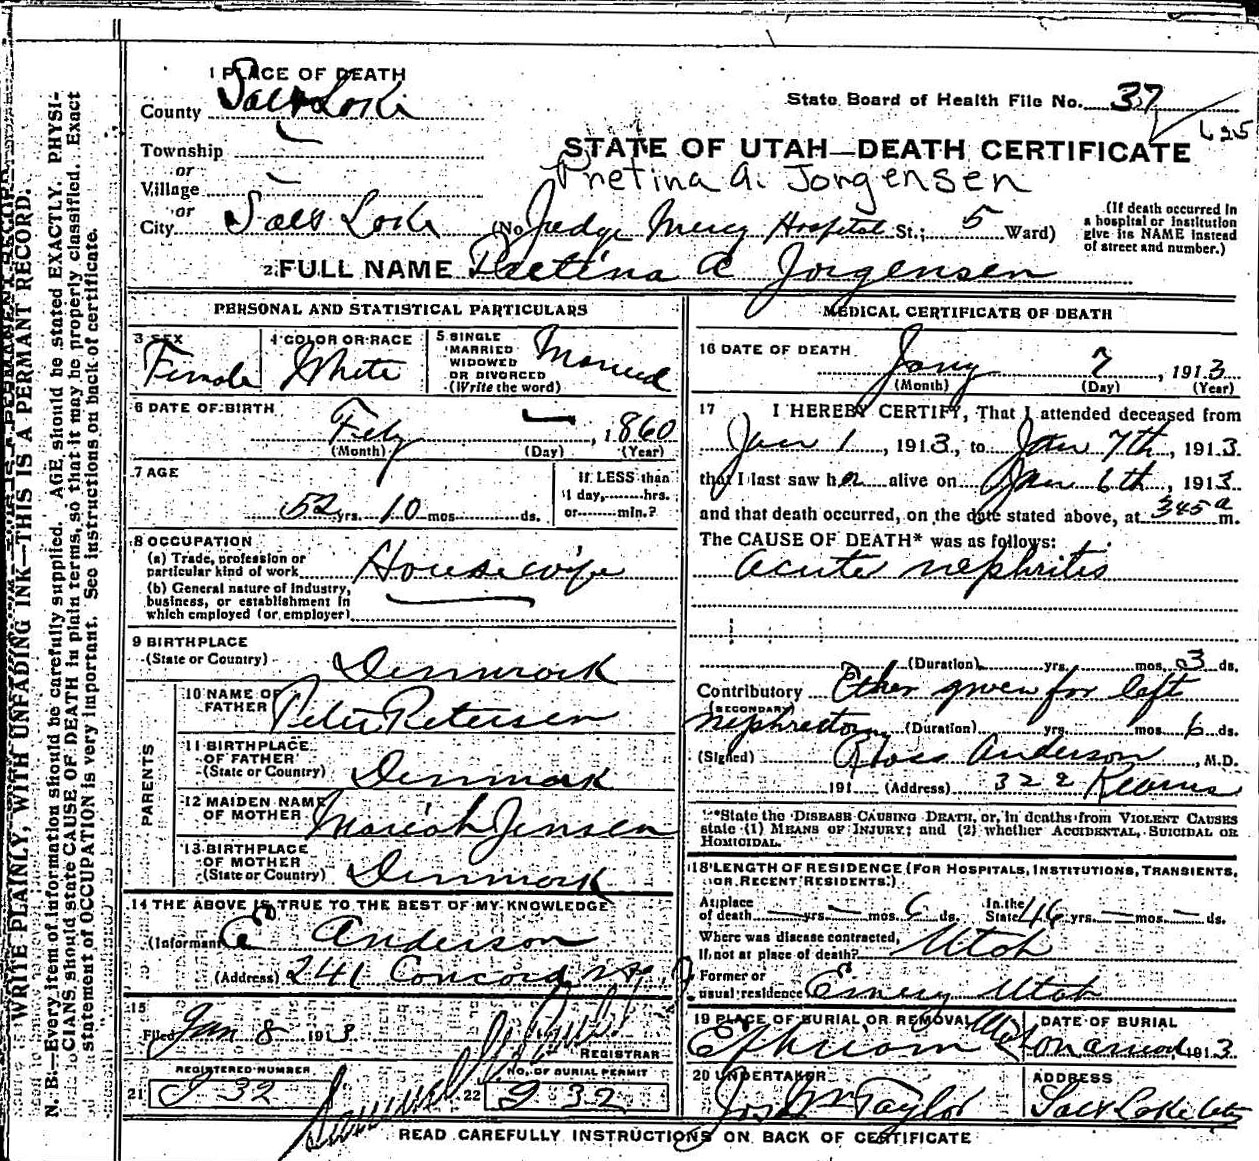 1 PLACE OF DEATH
County Salt Lake
State Board of Health File No. 37
625
Township
or
Village
or
City Salt Lake
STATE OF UTAH—DEATH CERTIFICATE
Pretina A. Jorgensen
(No. Judge Mercy Hospital St.; 5 Ward)
(If death occurred in
a hospital or institution
give its NAME instead
of street and number.)
2 FULL NAME Pretina A Jorgensen
PERSONAL AND STATISTICAL PARTICULARS
3 SEX
Female
4 COLOR OR RACE
White
5 SINGLE
MARRIED
WIDOWED
OR DIVORCED
(Write the word)
Married
6 DATE OF BIRTH
Feby — , 1860
(Month) (Day) (Year)
7 AGE
52 yrs. 10 mos. ds.
If LESS than
1 day, hrs.
or min.?
8 OCCUPATION
(a) Trade, profession or
particular kind of work Housewife
(b) General nature of industry,
business, or establishment in
which employed (or employer)
9 BIRTHPLACE
(State or Country) Denmark
PARENTS
10 NAME OF
FATHER Peter Petersen
11 BIRTHPLACE
OF FATHER
(State or Country) Denmark
12 MAIDEN NAME
OF MOTHER Mariah Jensen
13 BIRTHPLACE
OF MOTHER
(State or Country) Denmark
14 THE ABOVE IS TRUE TO THE BEST OF MY KNOWLEDGE
(Informant) C Anderson
(Address) 241 Concord
15
Filed Jan 8 1913
REGISTRAR
REGISTERED NUMBER
21 J 32
NO. OF BURIAL PERMIT
22 J 32
MEDICAL CERTIFICATE OF DEATH
16 DATE OF DEATH
Jany 7 , 1913
(Month) (Day) (Year)
17 I HEREBY CERTIFY, That I attended deceased from
Jan 1 , 1913, to Jan 7th, 1913.
that I last saw her alive on Jan 6th , 1913
and that death occurred, on the date stated above, at 345 a m.
The CAUSE OF DEATH* was as follows:
Acute nephritis
(Duration) yrs. mos. 3 ds.
Contributory Ether given for left
(SECONDARY)
nephrectomy (Duration) yrs. mos. 6 ds.
(Signed) Ross Anderson , M.D.
191 (Address) 322 Kearns
*State the DISEASE CAUSING DEATH, or, in deaths from VIOLENT CAUSES
state (1) MEANS OF INJURY; and (2) whether ACCIDENTAL, SUICIDAL OR
HOMICIDAL.
18 LENGTH OF RESIDENCE (FOR HOSPITALS, INSTITUTIONS, TRANSIENTS,
OR RECENT RESIDENTS.)
At place
of death — yrs. — mos. 6 ds.
In the
State 46 yrs. — mos. — ds.
Where was disease contracted,
If not at place of death? Utah
Former or
usual residence Emery Utah
19 PLACE OF BURIAL OR REMOVAL
Ephraim Utah
DATE OF BURIAL
on arrival 1913
20 UNDERTAKER
Jos Wm Taylor
ADDRESS
Salt Lake City
READ CAREFULLY INSTRUCTIONS ON BACK OF CERTIFICATE
WRITE PLAINLY, WITH UNFADING INK—THIS IS A PERMANT RECORD.
N. B.—Every item of information should be carefully supplied. AGE should be stated EXACTLY. PHYSI-
CIANS should state CAUSE OF DEATH in plain terms, so that it may be properly classified. Exact
statement of OCCUPATION is very important. See instructions on back of certificate.